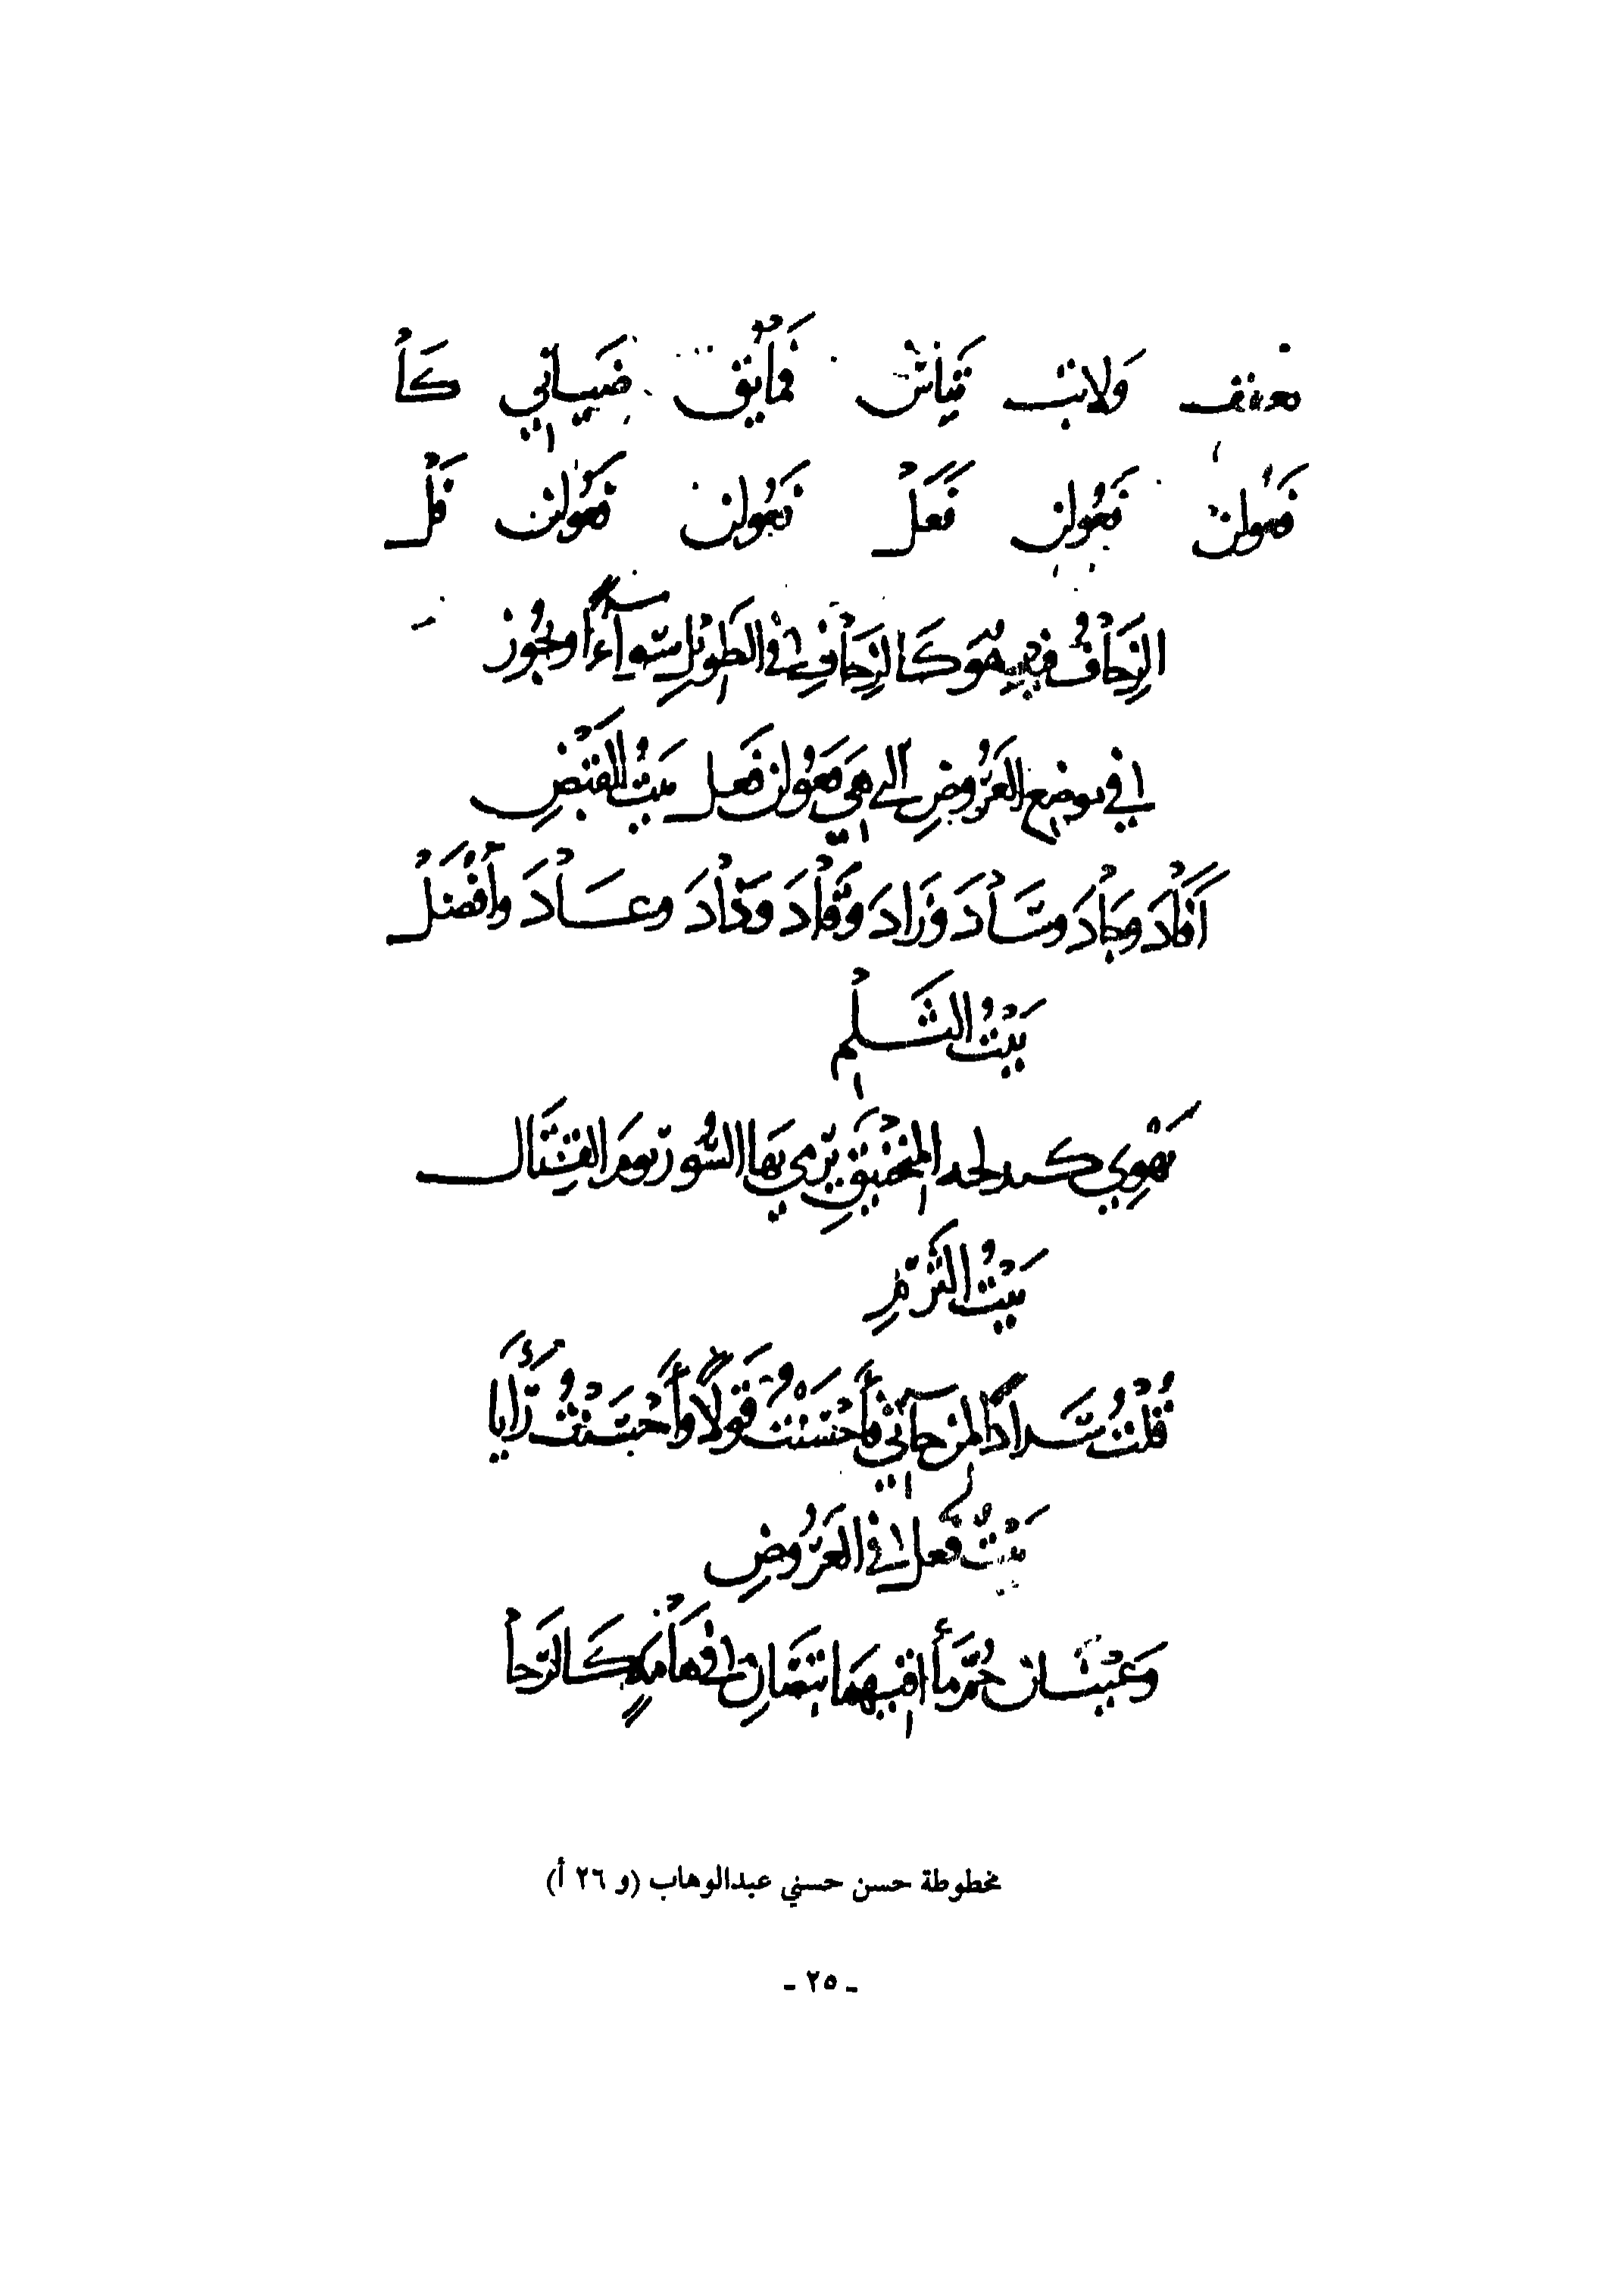 تعفف وَلا تبـ تَئِسْ فَمَا يُقْـ ضَ يأتي كَأْ
فعولن فعولن فَعَلْ فعولن فعولن فَلْ
الزِّحَافُ فيه هُوَ كَالزِّحَافِ في الطَّوِيلِ سَوَآءً أو يجُوز
في موضع العَرُوضِ التي هِيَ فَعُولن فَعَل بَيْتُ القَبْضِ
أَفَادَ وَجَادَ وَسَادَ وَزَادَ وَقَادَ وَذَادَ وَعَادَ وَأَفْضَلْ
بَيْتُ الثَّلْمِ
تَهْوِي كجندلة المنجنيقِ يُرْمي بَها السُّور يَومَ القِتَال
بَيْتُ الثَّرْمِ
قُلْتُ سَدادًا لمن جآءَني فَأَحْسَنْتُ قَوْلاً وأَحْسَنْتُ رَأْيا
بَيْتُ فَعَل في العَرُوضِ
وَعَيْنَان حُمْرٌ مَآقيهِمَا تَبِصَّانِ في هَامَةٍ كَالرَّحَا
مخطوطة حسن حسني عبدالوهاب (و ٢٦ أ)
ـ ٢٥ ـ